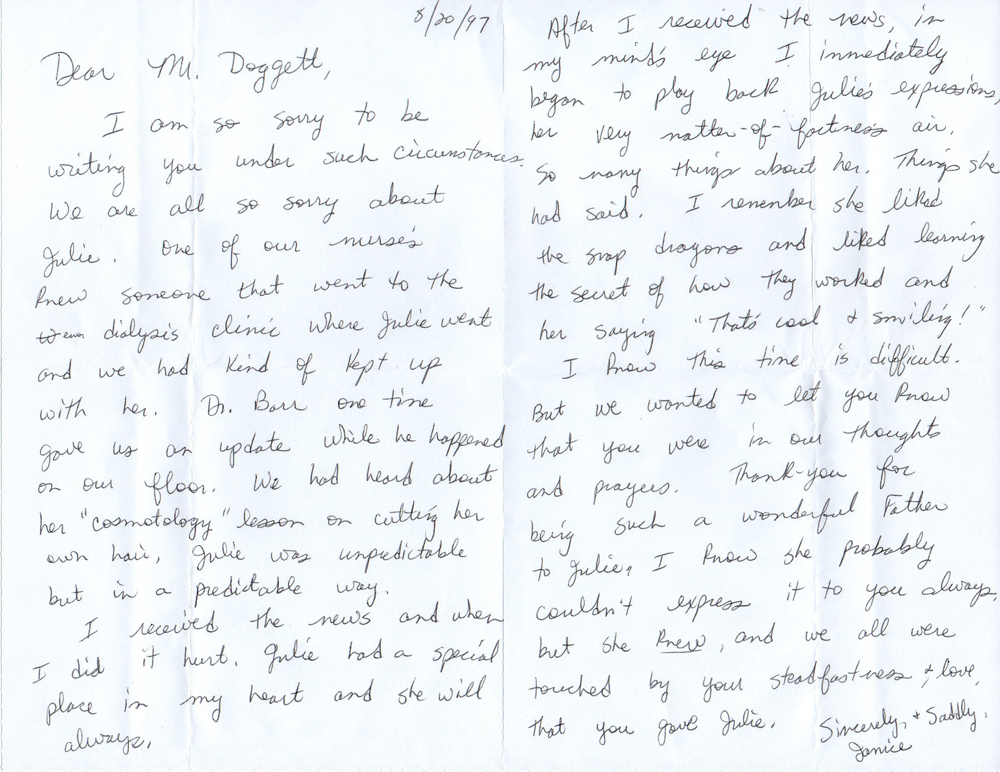 8/20/97
Dear Mr. Doggett,
I am so sorry to be
writing you under such circumstances.
We are all so sorry about
Julie. One of our nurse's
knew someone that went to the
dialysis clinic where Julie went
and we had kind of kept up
with her. Dr. Barr one time
gave us an update while he happened
on our floor. We had heard about
her "cosmotology" lesson on cutting her
own hair, Julie was unpredictable
but in a predictable way.
I received the news and when
I did it hurt. Julie had a special
place in my heart and she will
always.
After I received the news, in
my mind's eye I immediately
began to play back Julie's expressions,
her very matter-of-factness air.
So many things about her. Things she
had said. I remember she liked
the snap dragons and liked learning
the secret of how they worked and
her saying "That's cool & smiling!"
I know this time is difficult.
But we wanted to let you know
that you were in our thoughts
and prayers. Thank-you for
being such a wonderful Father
to Julie, I know she probably
couldn't express it to you always,
but she knew, and we all were
touched by your steadfastness & love,
that you gave Julie.
Sincerely, & Saddly,
Janice